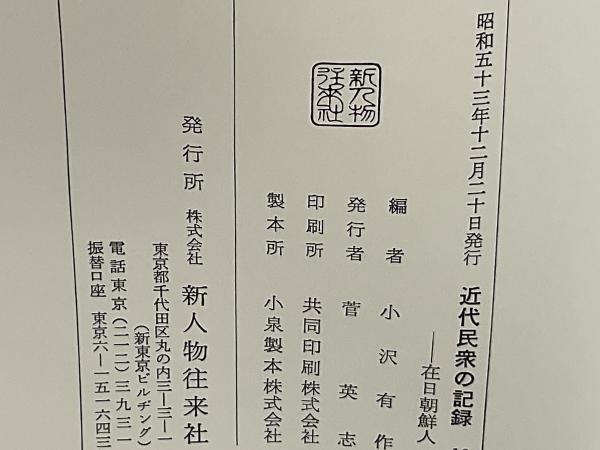 昭和五十三年十二月二十日発行
近代民衆の記録
――在日朝鮮人
編者 小沢有作
発行者 菅英志
印刷所 共同印刷株式会社
製本所 小泉製本株式会社
新人物往来社
発行所 株式会社 新人物往来社
東京都千代田区丸の内三―三―一
(新東京ビルヂング)
電話東京(二一二)三九三一
振替口座 東京六―一五一六四三